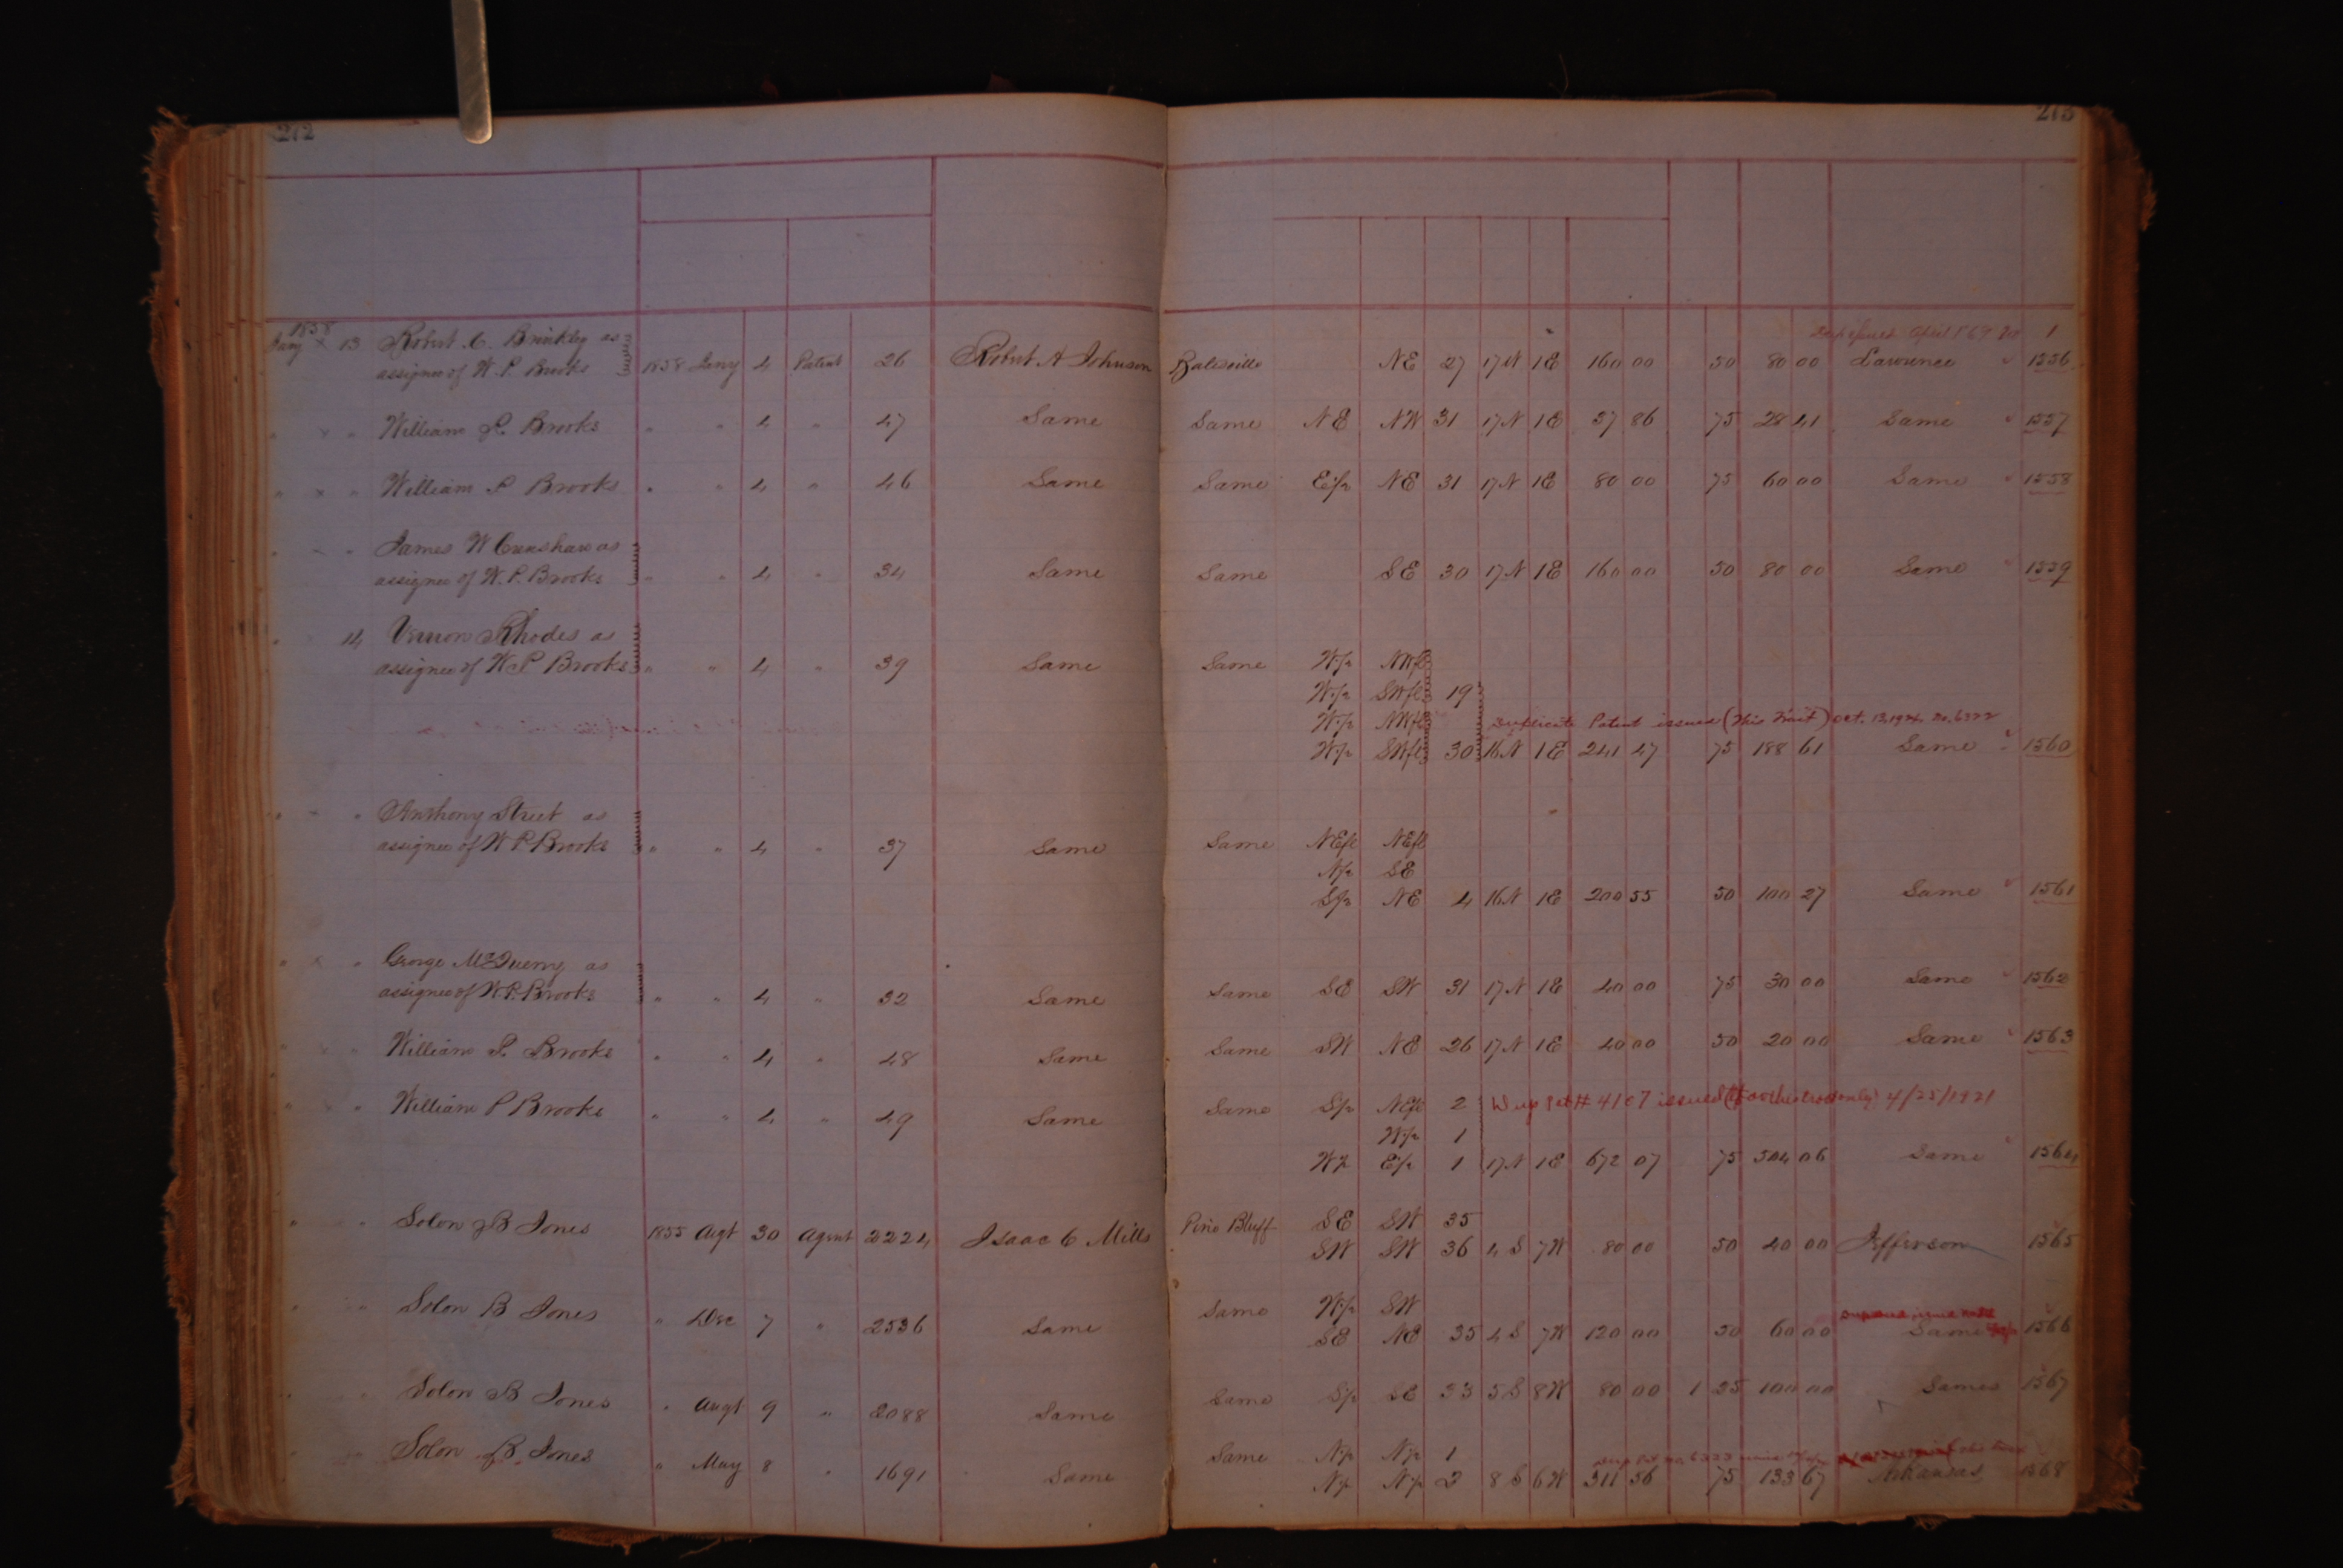 272 273
1858
Jany × 13 Robert C. Brinkley as
assignee of W. P. Brooks 1858 Jany 4 Patent 26 Robert A Johnson Batesville NE 27 17N 1E 160 00 50 80 00 Lawrence 1556
" × " William P. Brooks " " 4 " 47 Same Same NE NW 31 17N 1E 37 86 75 28 41 Same 1557
" × " William P Brooks " " 4 " 46 Same Same E½ NE 31 17N 1E 80 00 75 60 00 Same 1558
" × " James W Crenshaw as
assignee of W. P. Brooks " " 4 " 34 Same Same SE 30 17N 1E 160 00 50 80 00 Same 1559
" 14 Vernon Rhodes as
assignee of W P Brooks " " 4 " 39 Same Same W½ NWfl
W½ SWfl 19
W½ NWfl Duplicate Patent issued (this Tract) Oct.
W½ SWfl 30 16N 1E 241 47 75 188 61 Same 1560
" × " Anthony Street as
assignee of W P Brooks " " 4 " 37 Same Same NEfl NEfl
N½ SE
S½ NE 4 16N 1E 200 55 50 100 27 Same 1561
" × " George McQuerry as
assignee of W. P. Brooks " " 4 " 32 Same Same SE SW 31 17N 1E 40 00 75 30 00 Same 1562
" × " William P. Brooks " " 4 " 48 Same Same SW NE 26 17N 1E 40 00 50 20 00 Same 1563
" × " William P Brooks " " 4 " 49 Same Same S½ NEfl 2 Dup Pat # 4107 issued (for this tract only) 4/25/1921
W½ 1
W½ E½ 1 17N 1E 672 07 75 504 06 Same 1564
" " Solon B Jones 1855 Augt 30 Agent 2224 Isaac C Mills Pine Bluff SE SW 35
SW SW 36 4 S 7W 80 00 50 40 00 Jefferson 1565
" " Solon B Jones " Dec 7 " 2536 Same Same W½ SW
SE NE 35 4 S 7W 120 00 50 60 00 Same 1566
" " Solon B Jones " Augt 9 " 2088 Same Same S½ SE 33 5 S 8W 80 00 1 25 100 00 Same 1567
" " Solon B Jones " May 8 " 1691 Same Same N½ N½ 1
N½ N½ 2 8 S 6W 311 56 75 133 67 Arkansas 1568